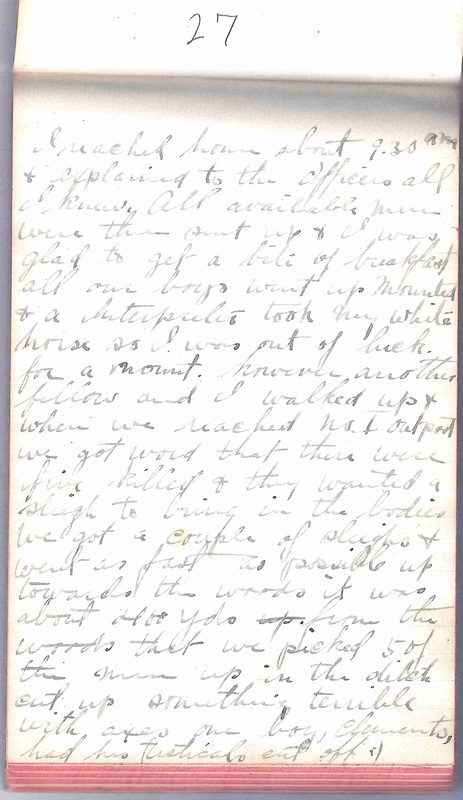 27
I reached home about 9.30 am
& explained to the Officers all
I knew. All available men
were then sent up & I was
glad to get a bite of breakfast
all our boys went up mounted
& a Interpreter took my white
horse so I was out of luck
for a mount. however another
fellow and I walked up &
when we reached No. 1 outpost
we got word that there were
five killed & they wanted a
sleigh to bring in the bodies
we got a couple of sleighs &
went as fast as possible up
towards the woods it was
about yds up from the
woods that we picked 5 of
the men up in the ditch
cut up something terrible
with axes one boy, Clements,
had his testicals cut off